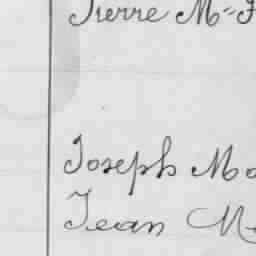 Pierre M
Joseph Mo
Jean M